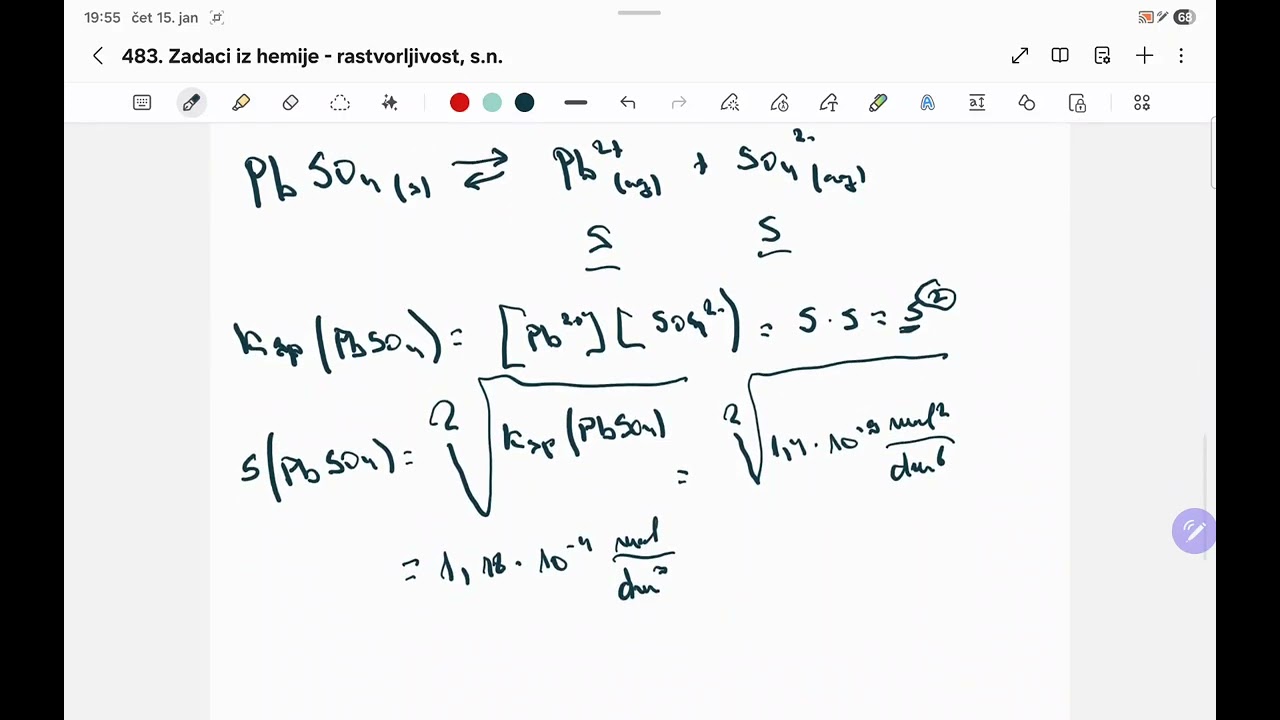 19:55 čet 15. jan 68
483. Zadaci iz hemije - rastvorljivost, s.n.
PbSO₄(s) ⇌ Pb²⁺(aq) + SO₄²⁻(aq)
S S
Ksp(PbSO₄) = [Pb²⁺][SO₄²⁻) = S · S = S²
S(PbSO₄) = ²√Ksp(PbSO₄) = ²√1,4 · 10⁻⁸ mol²/dm⁶
= 1,18 · 10⁻⁴ mol/dm³